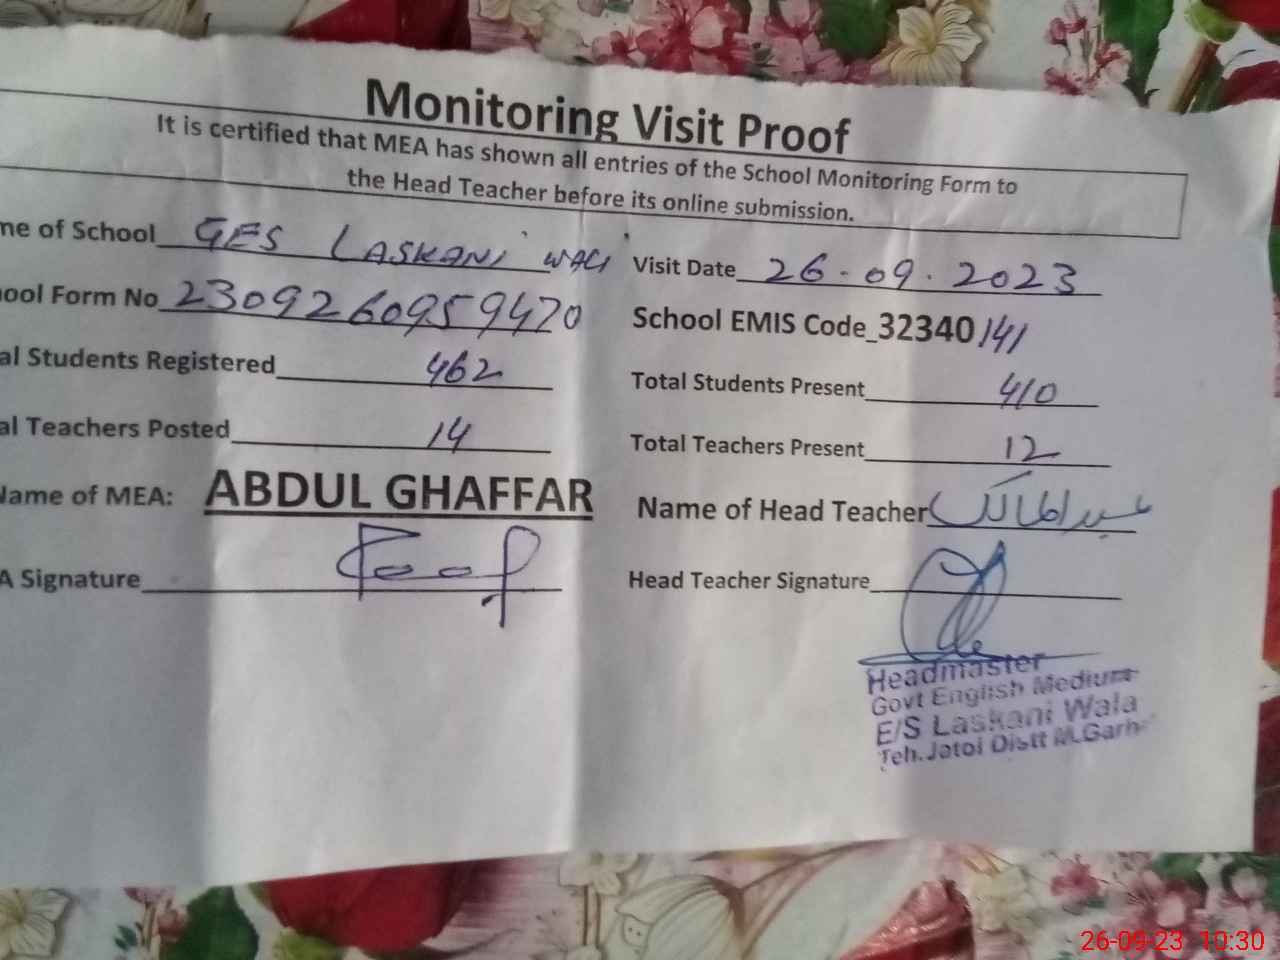 Monitoring Visit Proof
It is certified that MEA has shown all entries of the School Monitoring Form to
the Head Teacher before its online submission.
me of School GES LASKANI WALA Visit Date 26-09.2023
ool Form No 2309260959470 School EMIS Code_32340141
al Students Registered 462 Total Students Present 410
al Teachers Posted 14 Total Teachers Present 12
Name of MEA: ABDUL GHAFFAR Name of Head Teacher
A Signature Head Teacher Signature
Headmaster
Govt English Medium
E/S Laskani Wala
Teh. Jatoi Distt M.Garh
26-09-23 10:30